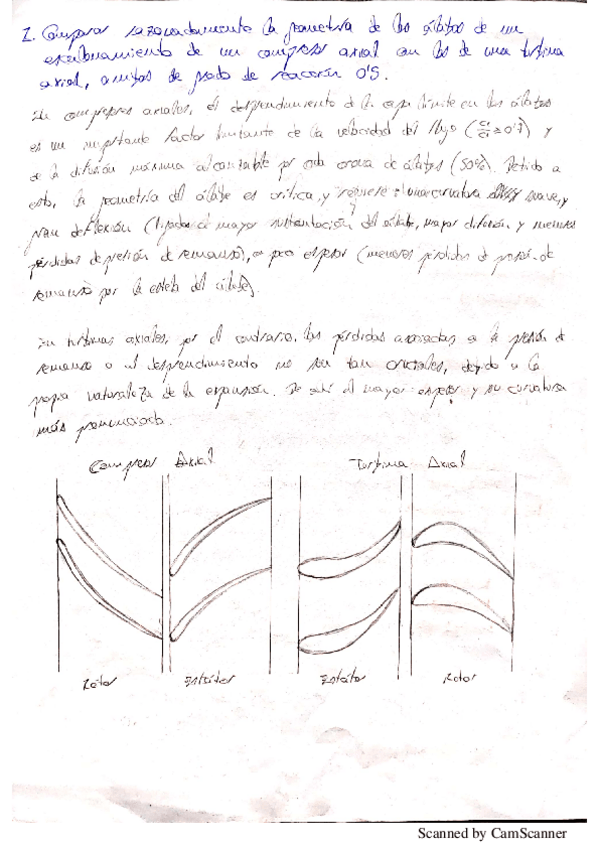 2. Comparar razonadamente la geometría de los álabes de un
escalonamiento de un compresor axial con los de una turbina
axial, ambos de grado de reacción 0'5.
En compresores axiales, el desprendimiento de la capa límite en los álabes
es un importante factor limitante de la velocidad del flujo y
de la difusión máxima alcanzable por cada corona de álabes (50%). Debido a
esto, la geometría del álabe es crítica, y requiere una curvatura suave, y
gran deflexión (ligados al mayor sustentación del álabe, mayor difusión y menores
pérdidas de presión de remanso), o poco espesor (menores pérdidas de presión de
remanso por la estela del álabe).
En turbinas axiales, por el contrario, las pérdidas asociadas a la presión de
remanso o al desprendimiento no son tan cruciales, debido a la
propia naturaleza de la expansión. De ahí el mayor espesor y su curvatura
más pronunciada.
Compresor Axial
Turbina Axial
Rotor
Estátor
Estátor
Rotor
Scanned by CamScanner